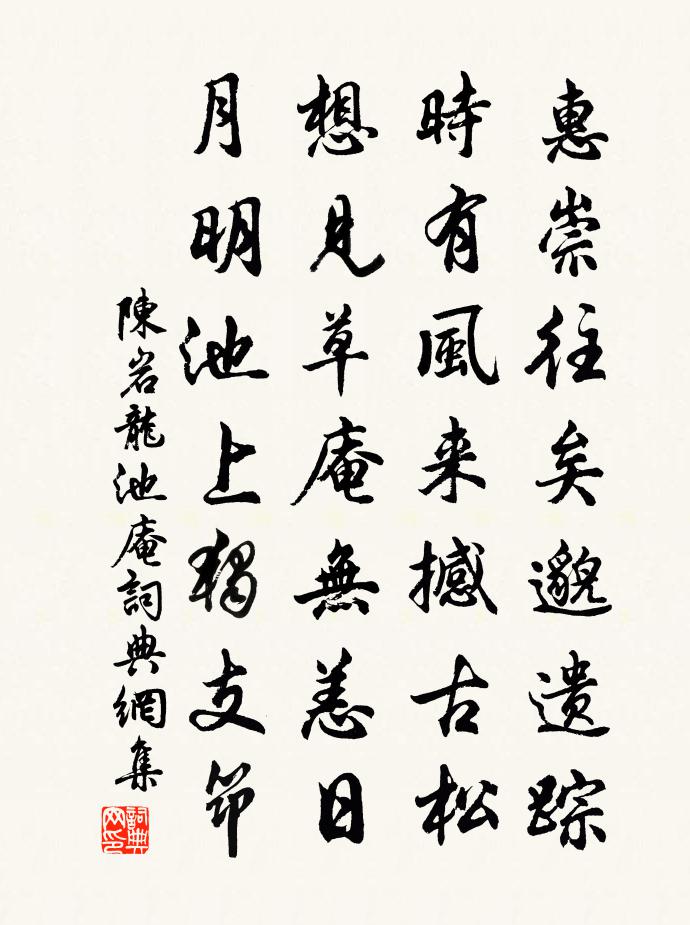 惠崇往矣邈遗踪
時有風来撼古松
想見草庵無恙日
月明池上獨支筇
陳岩龍池庵詞典網集
詞典网印